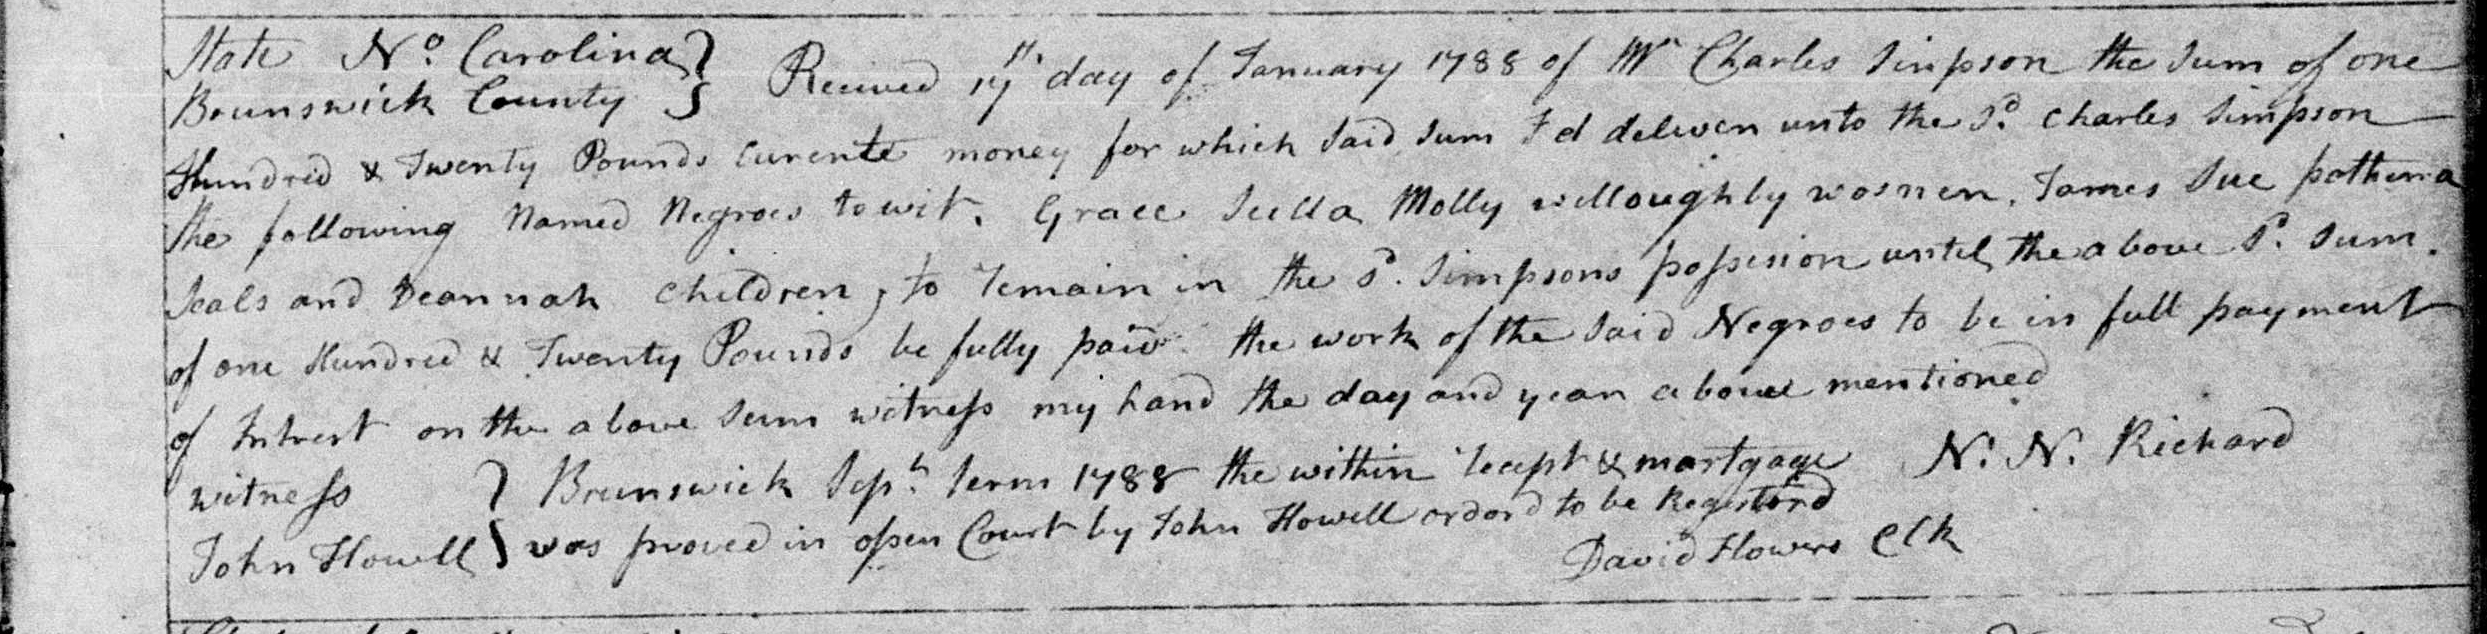 State No. Carolina }
Brunswick County } Received 17th day of January 1788 of Mr Charles Simpson the Sum of one
Hundred & Twenty Pounds Curente money for which said sum I d deliver unto the Sd. Charles Simpson
the following Named Negroes towit. Grace Sulla Molly willoughby women. James Sue
Seals and Deannah Children, to remain in the Sd. Simpsons possesion until the above Sd. Sum.
of one Hundred & Twenty Pounds be fully paid the work of the said Negroes to be in full payment
of Intrest on the above Sum witness my hand the day and year above mentioned
witness } Brunswick Sept. Term 1788 the within recept & mortgage N. N. Richard
John Howell } was proved in open Court by John Howell ordord to be Registord
David Flowers Clk